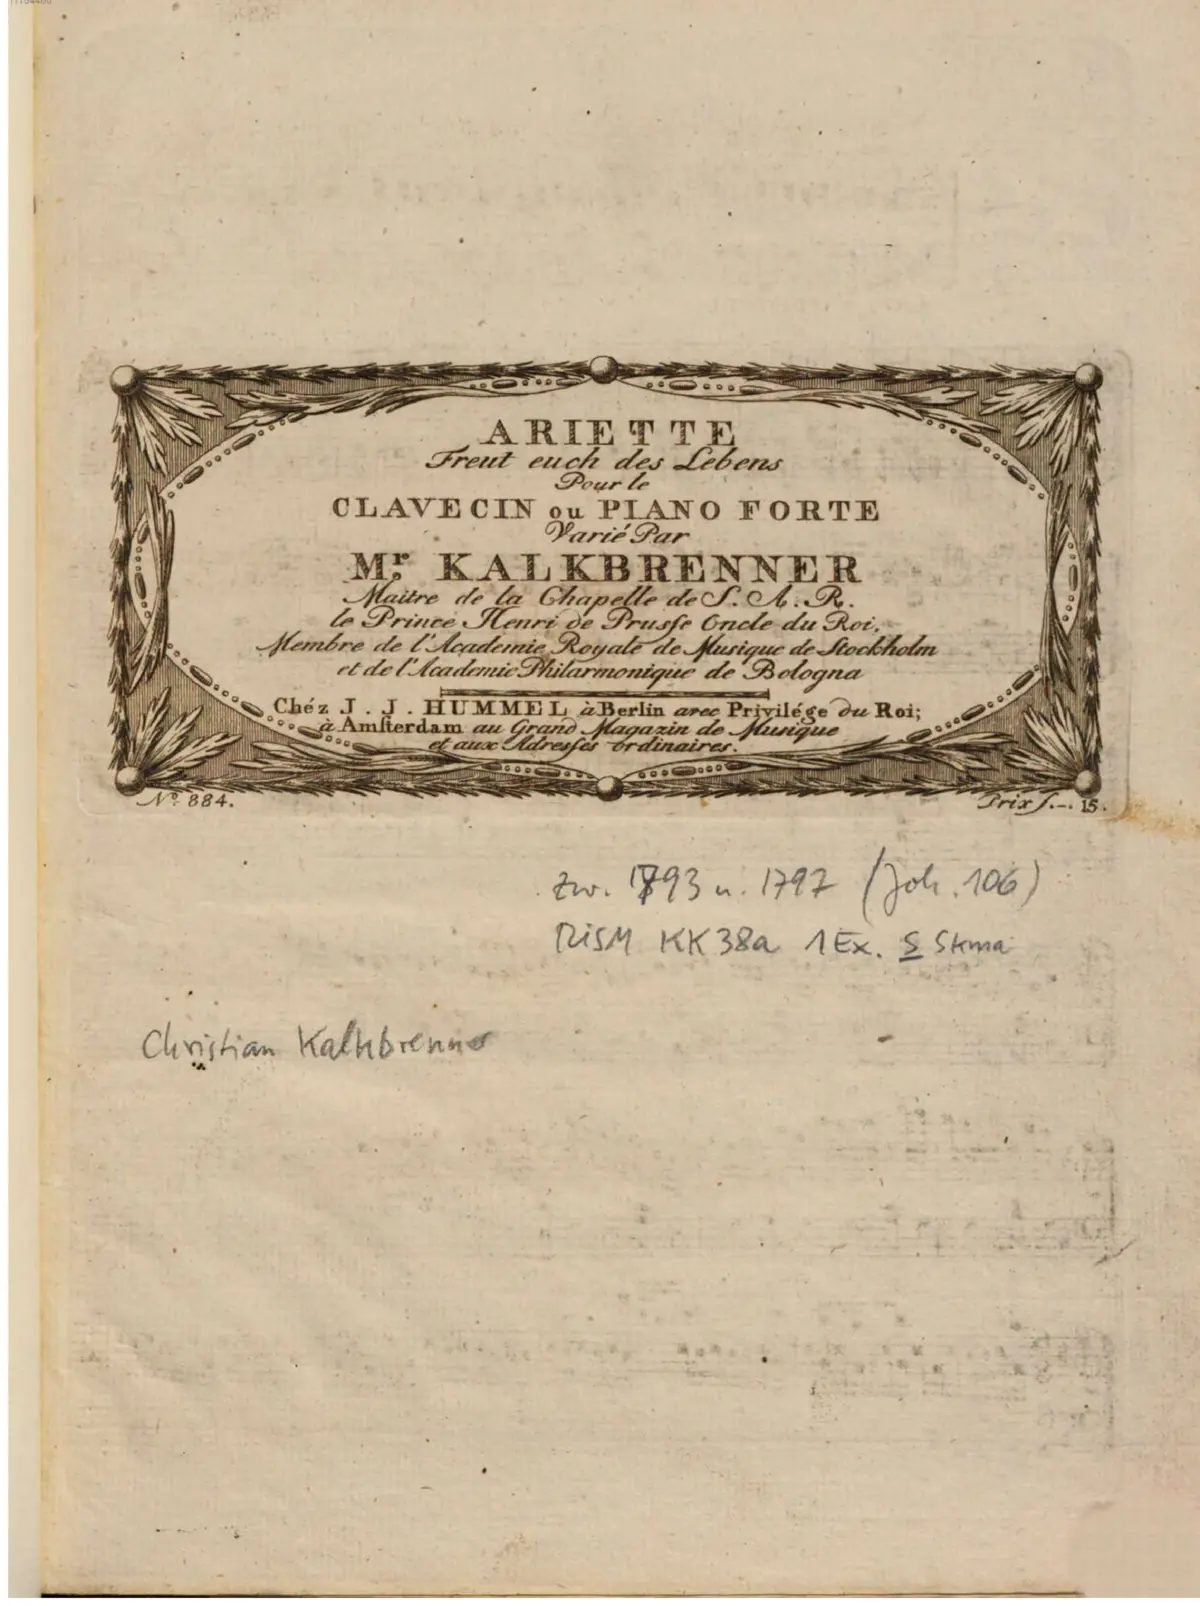 ARIETTE
Freut euch des Lebens
Pour le
CLAVECIN ou PIANO FORTE
Varié Par
Mr. KALKBRENNER
Maitre de la Chapelle de S. A. R.
le Prince Henri de Prusse Oncle du Roi.
Membre de l'Academie Royale de Musique de Stockholm
et de l'Academie Philarmonique de Bologna
Chéz J. J. HUMMEL à Berlin avec Privilége du Roi;
à Amsterdam au Grand Magazin de Musique
et aux Adresses ordinaires.
No. 884.
Prix f.-. 15.
zw. 1793 u. 1797 (Joh. 106)
RISM KK 38a 1 Ex. S Skma
Christian Kalkbrenner